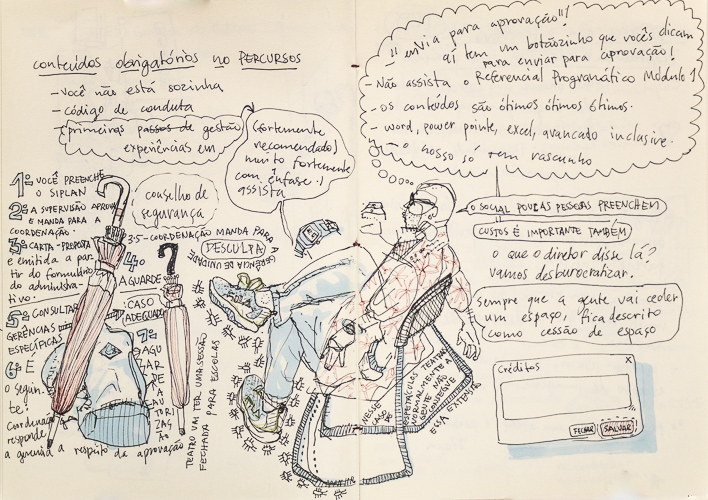 conteúdos obrigatórios no PERCURSOS
- Você não está sozinha
- código de conduta
- primeiras passos de gestão
experiências em
(fortemente
recomendado)
muito fortemente
com ênfase!
assista
1º VOCÊ PREENCHE
O SIPLAN
2º A SUPERVISÃO APROVA
E MANDA PARA A
COORDENAÇÃO.
3º CARTA-PROPOSTA
é emitida a par-
tir do formulário
do administra-
tivo.
conselho de
segurança
3.5 - COORDENAÇÃO MANDA PARA A
GERÊNCIA DE UNIDADE
DESCULPA
4º
AGUARDE
(CASO
ADEQUADO
5º CONSULTAR
GERÊNCIAS
ESPECÍFICAS
6º É
o seguin-
te!
Coordenação
responde
a gerência a respeito da aprovação
7º
AGU
AR
DE
A
AU
TORI
ZAÇ
ÃO
TEATRO VAI TER UMA SESSÃO
FECHADA PARA ESCOLAS
"envia para aprovação"!
aí tem um botãozinho que vocês clicam
para enviar para aprovação!
- Não assista o Referencial Programático Módulo 1
- os conteúdos são ótimos ótimos ótimos.
- word, power pointe, excel, avançado inclusive.
- o nosso só tem rascunho
O SOCIAL POUCAS PESSOAS PREENCHEM
CUSTOS É IMPORTANTE TAMBÉM
o que o diretor disse lá?
vamos desburocratizar.
sempre que a gente vai ceder
um espaço, fica descrito
como cessão de espaço
NESSE
CASO
DE
ESPETÁCULOS TEATRAIS
NORMALMENTE A
GENTE NÃO
CONSEGUE
ESSA
Créditos
X
FECHAR
SALVAR